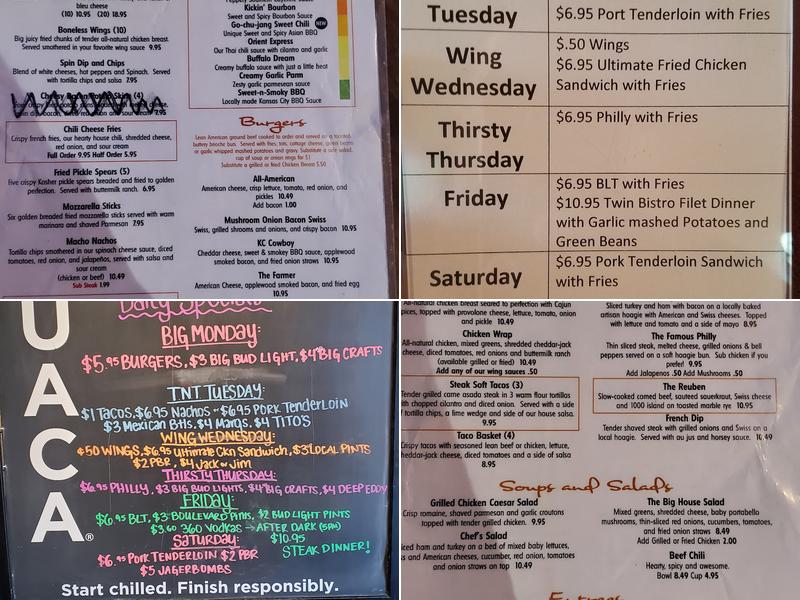 bleu cheese
(10) 10.95 (20) 18.95
Boneless Wings (10)
Big juicy fried chunks of tender all-natural chicken breast.
Served smothered in your favorite wing sauce 9.95
Spin Dip and Chips
Blend of white cheeses, hot peppers and Spinach. Served
with tortilla chips and salsa 7.95
Chili Cheese Fries
Crispy french fries, our hearty house chili, shredded cheese,
red onion, and sour cream
Full Order 9.95 Half Order 5.95
Fried Pickle Spears (5)
Five crispy Kosher pickle spears breaded and fried to golden
perfection. Served with buttermilk ranch. 6.95
Mozzarella Sticks
Six golden breaded fried mozzarella sticks served with warm
marinara and shaved Parmesan 7.95
Macho Nachos
Tortilla chips smothered in our spinach cheese sauce, diced
tomatoes, red onion, and jalapeños, served with salsa and
sour cream
(chicken or beef) 10.49
Sub Steak 1.99
Kickin' Bourbon
Sweet and Spicy Bourbon Sauce
Go-chu-jang Sweet Chili NEW
Unique Sweet and Spicy Asian BBQ
Orient Express
Our Thai chili sauce with cilantro and garlic
Buffalo Dream
Creamy buffalo sauce with just a little heat
Creamy Garlic Parm
Zesty garlic parmesan sauce
Sweet-n-Smoky BBQ
Locally made Kansas City BBQ Sauce
Burgers
Lean American ground beef cooked to order and served on a toasted
buttery brioche bun. Served with fries, tots, cottage cheese, green beans
or garlic whipped mashed potatoes and gravy. Substitute a side salad,
cup of soup or onion rings for $1
Substitute a grilled or fried Chicken Breast $.50
All-American
American cheese, crisp lettuce, tomato, red onion, and
pickles 10.49
Add bacon 1.00
Mushroom Onion Bacon Swiss
Swiss, grilled shrooms and onions, and crispy bacon 10.95
KC Cowboy
Cheddar cheese, sweet & smoky BBQ sauce, applewood
smoked bacon, and fried onion straws 10.95
The Farmer
American Cheese, applewood smoked bacon, and fried egg
10.95
Tuesday
$6.95 Port Tenderloin with Fries
Wing
Wednesday
$.50 Wings
$6.95 Ultimate Fried Chicken
Sandwich with Fries
Thirsty
Thursday
$6.95 Philly with Fries
Friday
$6.95 BLT with Fries
$10.95 Twin Bistro Filet Dinner
with Garlic mashed Potatoes and
Green Beans
Saturday
$6.95 Pork Tenderloin Sandwich
with Fries
UACA®
Daily Specials
BIG MONDAY:
$5.95 BURGERS, $3 BIG BUD LIGHT, $4 BIG CRAFTS
TNT TUESDAY:
$1 TACOS, $6.95 Nachos - $6.95 PORK TenderLOIN
$3 Mexican Bttls, $4 Margs, $4 TITO'S
WING WEDNESDAY:
$.50 WINGS, $6.95 Ultimate Ckn Sandwich, $3 LOCAL PINTS
$2 PBR, $4 Jack or Jim
THIRSTY THURSDAY:
$6.95 PHILLY, $3 BIG BUD LIGHTS, $4 BIG CRAFTS, $4 DEEP EDDY
FRIDAY:
$6.95 BLT, $3 BOULEVARD Pints, $2 BUD LIGHT PINTS
$3.60 360 Vodkas → AFTER DARK (5PM)
SATURDAY:
$6.95 PORK TENDERLOIN $2 PBR
$5 JAGERBOMBS
$10.95
STEAK DINNER!
Start chilled. Finish responsibly.
All-natural chicken breast seared to perfection with Cajun
pices, topped with provolone cheese, lettuce, tomato, onion
and pickle 10.49
Chicken Wrap
All-natural chicken, mixed greens, shredded cheddar-jack
cheese, diced tomatoes, red onions and buttermilk ranch
(available grilled or fried) 10.49
Add any of our wing sauces .50
Steak Soft Tacos (3)
Tender grilled carne asada steak in 3 warm flour tortillas
with chopped cilantro and diced onion. Served with a side
f tortilla chips, a lime wedge and side of our house salsa.
9.95
Taco Basket (4)
Crispy tacos with seasoned lean beef or chicken, lettuce,
heddar-jack cheese, diced tomatoes and a side of salsa
8.95
Sliced turkey and ham with bacon on a locally baked
artisan hoagie with American and Swiss cheeses. Topped
with lettuce and tomato and a side of mayo 8.95
The Famous Philly
Thin sliced steak, melted cheese, grilled onions & bell
peppers served on a soft hoagie bun. Sub chicken if you
prefer! 9.95
Add Jalapenos .50 Add Mushrooms .50
The Reuben
Slow-cooked corned beef, sauteed sauerkraut, Swiss cheese
and 1000 island on toasted marble rye 10.95
French Dip
Tender shaved steak with grilled onions and Swiss on a
local hoagie. Served with au jus and horsey sauce. 10.49
Soups and Salads
Grilled Chicken Caesar Salad
Crisp romaine, shaved parmesan and garlic croutons
topped with tender grilled chicken. 9.95
Chef's Salad
iced ham and turkey on a bed of mixed baby lettuces,
ss and American cheeses, cucumber, red onion, tomatoes
and onion straws on top 10.49
The Big House Salad
Mixed greens, shredded cheese, baby portabello
mushrooms, thin-sliced red onions, cucumbers, tomatoes,
and fried onion straws 8.49
Add Grilled or Fried Chicken 2.00
Beef Chili
Hearty, spicy and awesome.
Bowl 8.49 Cup 4.95